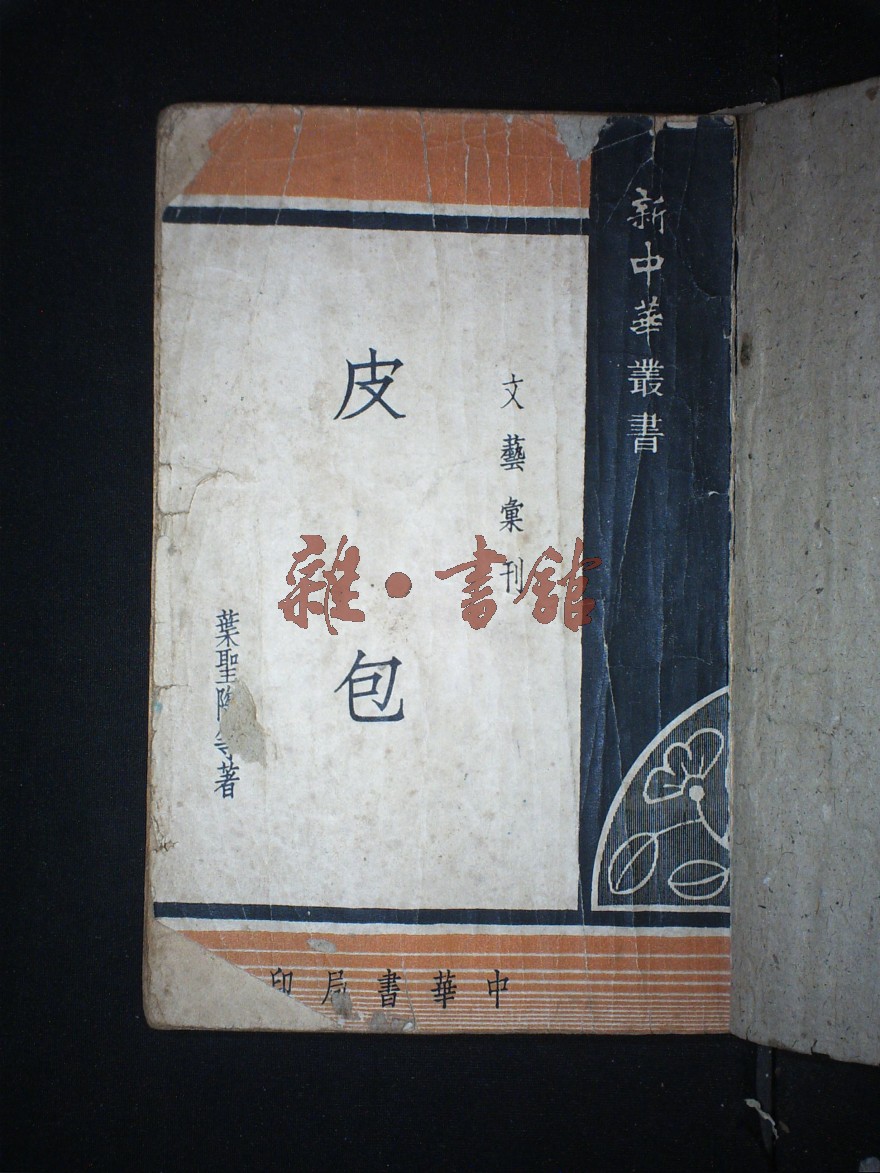 新中華叢書
文藝彙刊
皮包
葉聖陶等著
中華書局印
雜·書館